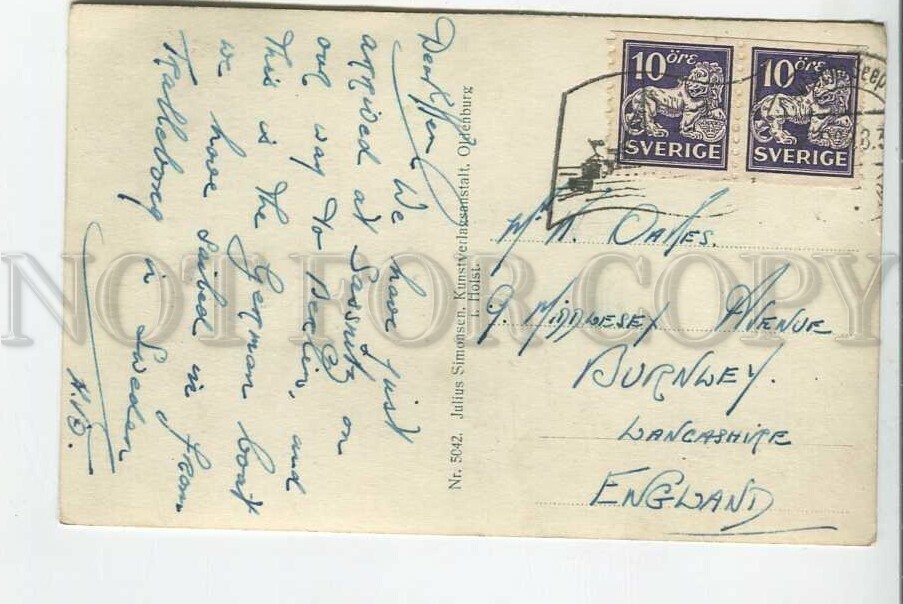 We have just
arrived at Sassnitz on
our way to Berlin, and
This is the German boat
we have sailed in from
Tralleborg in Sweden
Nr. 5042. Julius Simonsen, Kunstverlagsanstalt, Oldenburg
i. Holst.
10 ÖRE
SVERIGE
10 ÖRE
SVERIGE
Oakes.
9. Middlesex Avenue
BURNLEY.
LANCASHIRE
ENGLAND
NOT FOR COPY